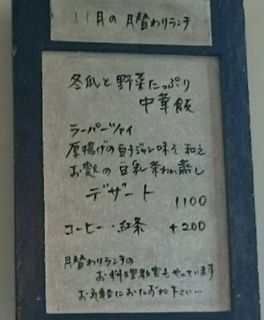 11月の月替わりランチ
冬瓜と野菜たっぷり
中華飯
ラーパーツァイ
厚揚げの豆チジャン味そ和え
お麩の豆乳茶わん蒸し
デザート
1100
コーヒー・紅茶 +200
月替わりランチの
お料理教室もやっています
お気軽におたずね下さい…